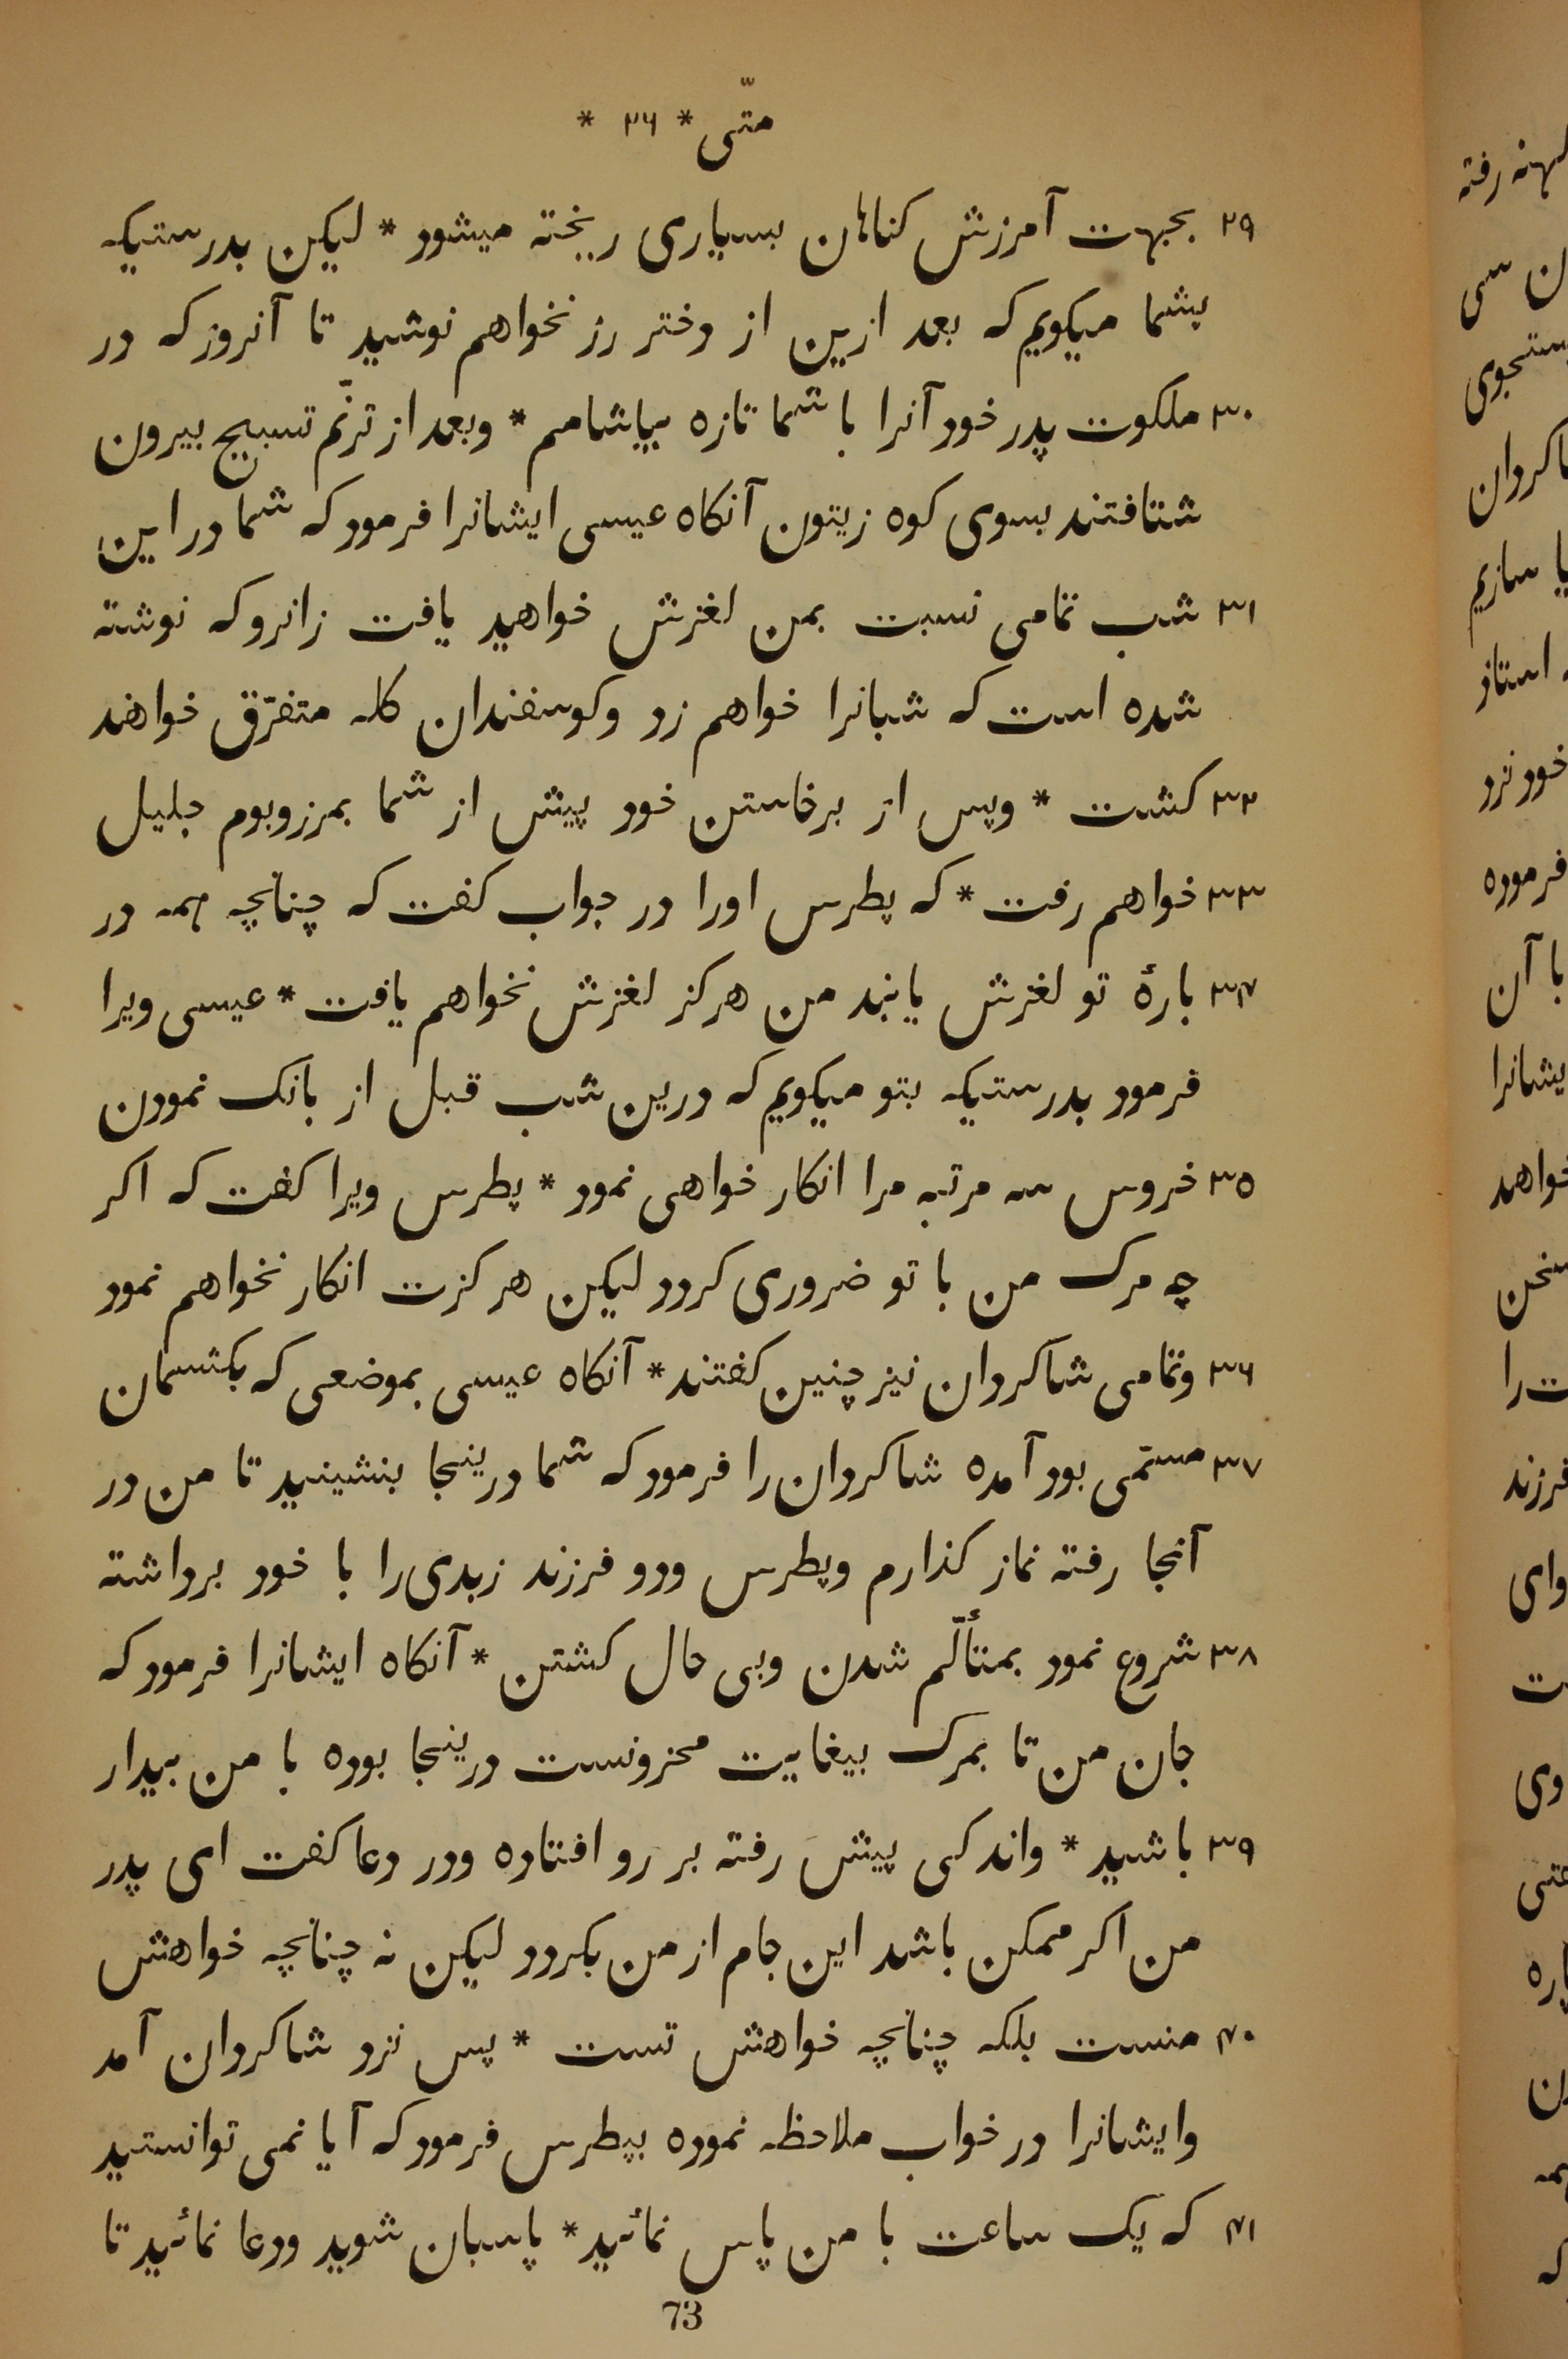 متّی * ۲۶ *
۲۹ بجبهت آمرزش کناهان بسیاری ریخته میشود * لیکن بدرستیکه
بشما میکویم که بعد ازین از دختر رز نخواهم نوشید تا آنروز که در
۳۰ ملکوت پدر خود آنرا با شما تازه بیاشامم * وبعد از ترنّم تسبیح بیرون
شتافتند بسوی کوه زیتون آنکاه عیسی ایشانرا فرمود که شما در این
۳۱ شب تمامی نسبت بمن لغزش خواهید یافت زانرو که نوشته
شده است که شبانرا خواهم زد وکوسفندان کله متفرّق خواهند
۳۲ کشت * وپس از برخاستن خود پیش از شما بمرزوبوم جلیل
۳۳ خواهم رفت * که پطرس اورا در جواب کفت که چنانچه همه در
۳۴ بارهٔ تو لغزش یابند من هرکز لغزش نخواهم یافت * عیسی ویرا
فرمود بدرستیکه بتو میکویم که درین شب قبل از بانک نمودن
۳۵ خروس سه مرتبه مرا انکار خواهی نمود * پطرس ویرا کفت که اکر
چه مرک من با تو ضروری کردد لیکن هرکزت انکار نخواهم نمود
۳۶ وتمامی شاکردان نیز چنین کفتند * آنکاه عیسی بموضعی که بکتسمان
۳۷ مستمی بود آمده شاکردان را فرمود که شما درینجا بنشینید تا من در
آنجا رفته نماز کذارم وپطرس ودو فرزند زبدی را با خود برداشته
۳۸ شروع نمود بمتألّم شدن وبی حال کشتن * آنکاه ایشانرا فرمود که
جان من تا بمرک بیغایت محزونست درینجا بوده با من بیدار
۳۹ باشید * واندکی پیش رفته بر رو افتاده ودر دعا کفت ای پدر
من اکر ممکن باشد این جام از من بکردد لیکن نه چنانچه خواهش
۴۰ منست بلکه چنانچه خواهش تست * پس نزد شاکردان آمد
وایشانرا در خواب ملاحظه نموده بپطرس فرمود که آیا نمی توانستید
۴۱ که یک ساعت با من پاس نمائید * پاسبان شوید ودعا نمائید تا
73